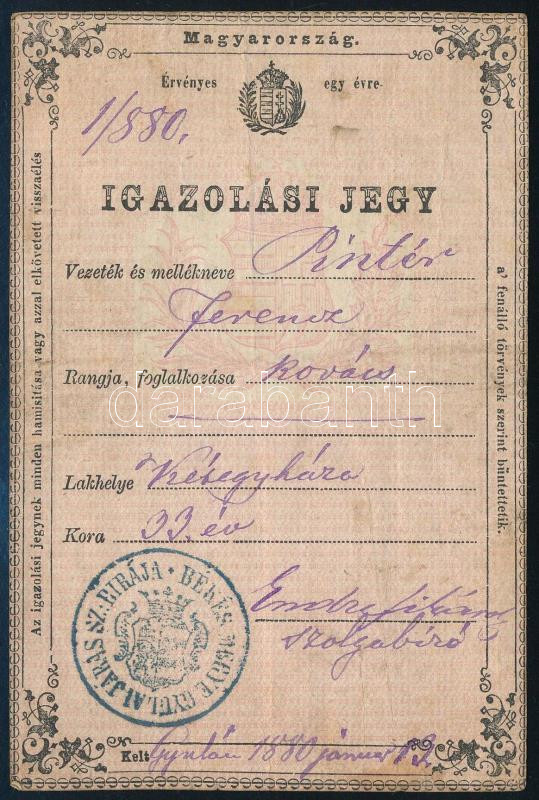 Magyarország.
Érvényes egy évre.
1/880.
IGAZOLÁSI JEGY
Vezeték és mellékneve Pintér
Ferencz
Rangja, foglalkozása kovács
darabanth
Lakhelye Kétegyháza
Kora 33. év
szolgabíró
BÉKÉS MEGYE GYULAI JÁRÁS SZ.BIRÁJA
Kelt Gyulán 1880 január
Az igazolási jegynek minden hamisítása vagy azzal elkövetett visszaélés
a' fenálló törvények szerint büntettetik.